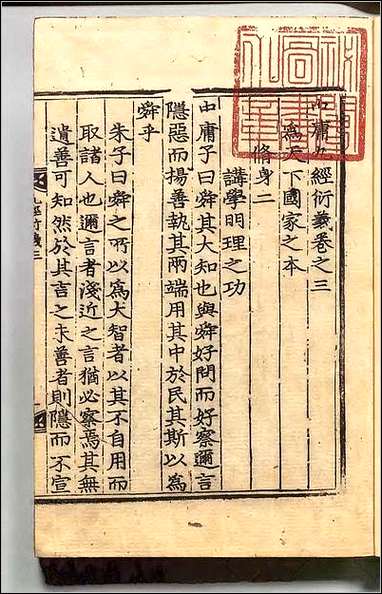 中庸九經衍義卷之三
為天下國家之本
脩身二
講學明理之功
中庸子曰舜其大知也與舜好問而好察邇言
隱惡而揚善執其兩端用其中於民其斯以為
舜乎
朱子曰舜之所以為大智者以其不自用而
取諸人也邇言者淺近之言猶必察焉其無
遺善可知然於其言之未善者則隱而不宣
九經衍義三